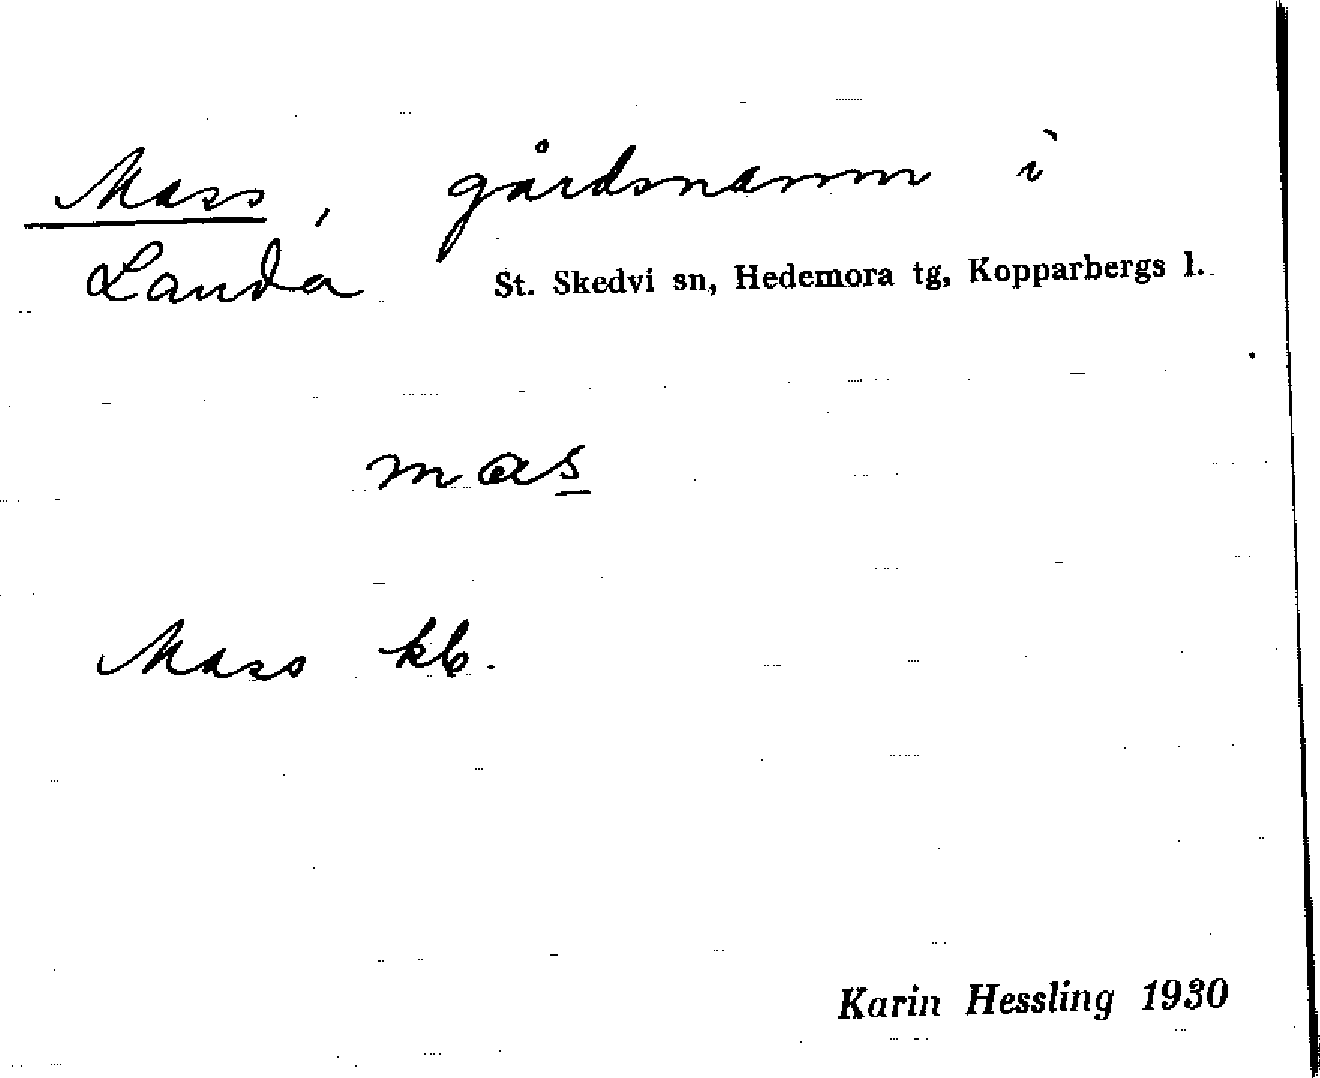 Mass, gårdsnamn i
Landa St. Skedvi sn, Hedemora tg, Kopparbergs l.
mas
Mass kb.
Karin Hessling 1930